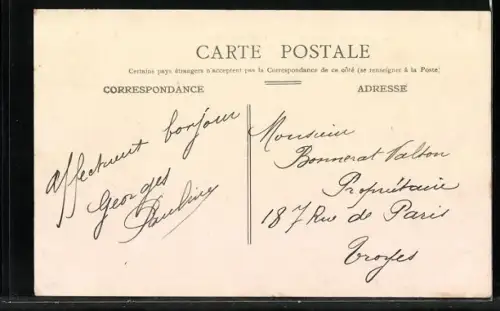 CARTE POSTALE
Certains pays étrangers n'acceptent pas la Correspondance de ce côté (se renseigner à la Poste)
CORRESPONDANCE
affectueux bonjour
Georges
Pauline
ADRESSE
Monsieur
Bonnerat Valton
Propriétaire
187 Rue de Paris
Troyes